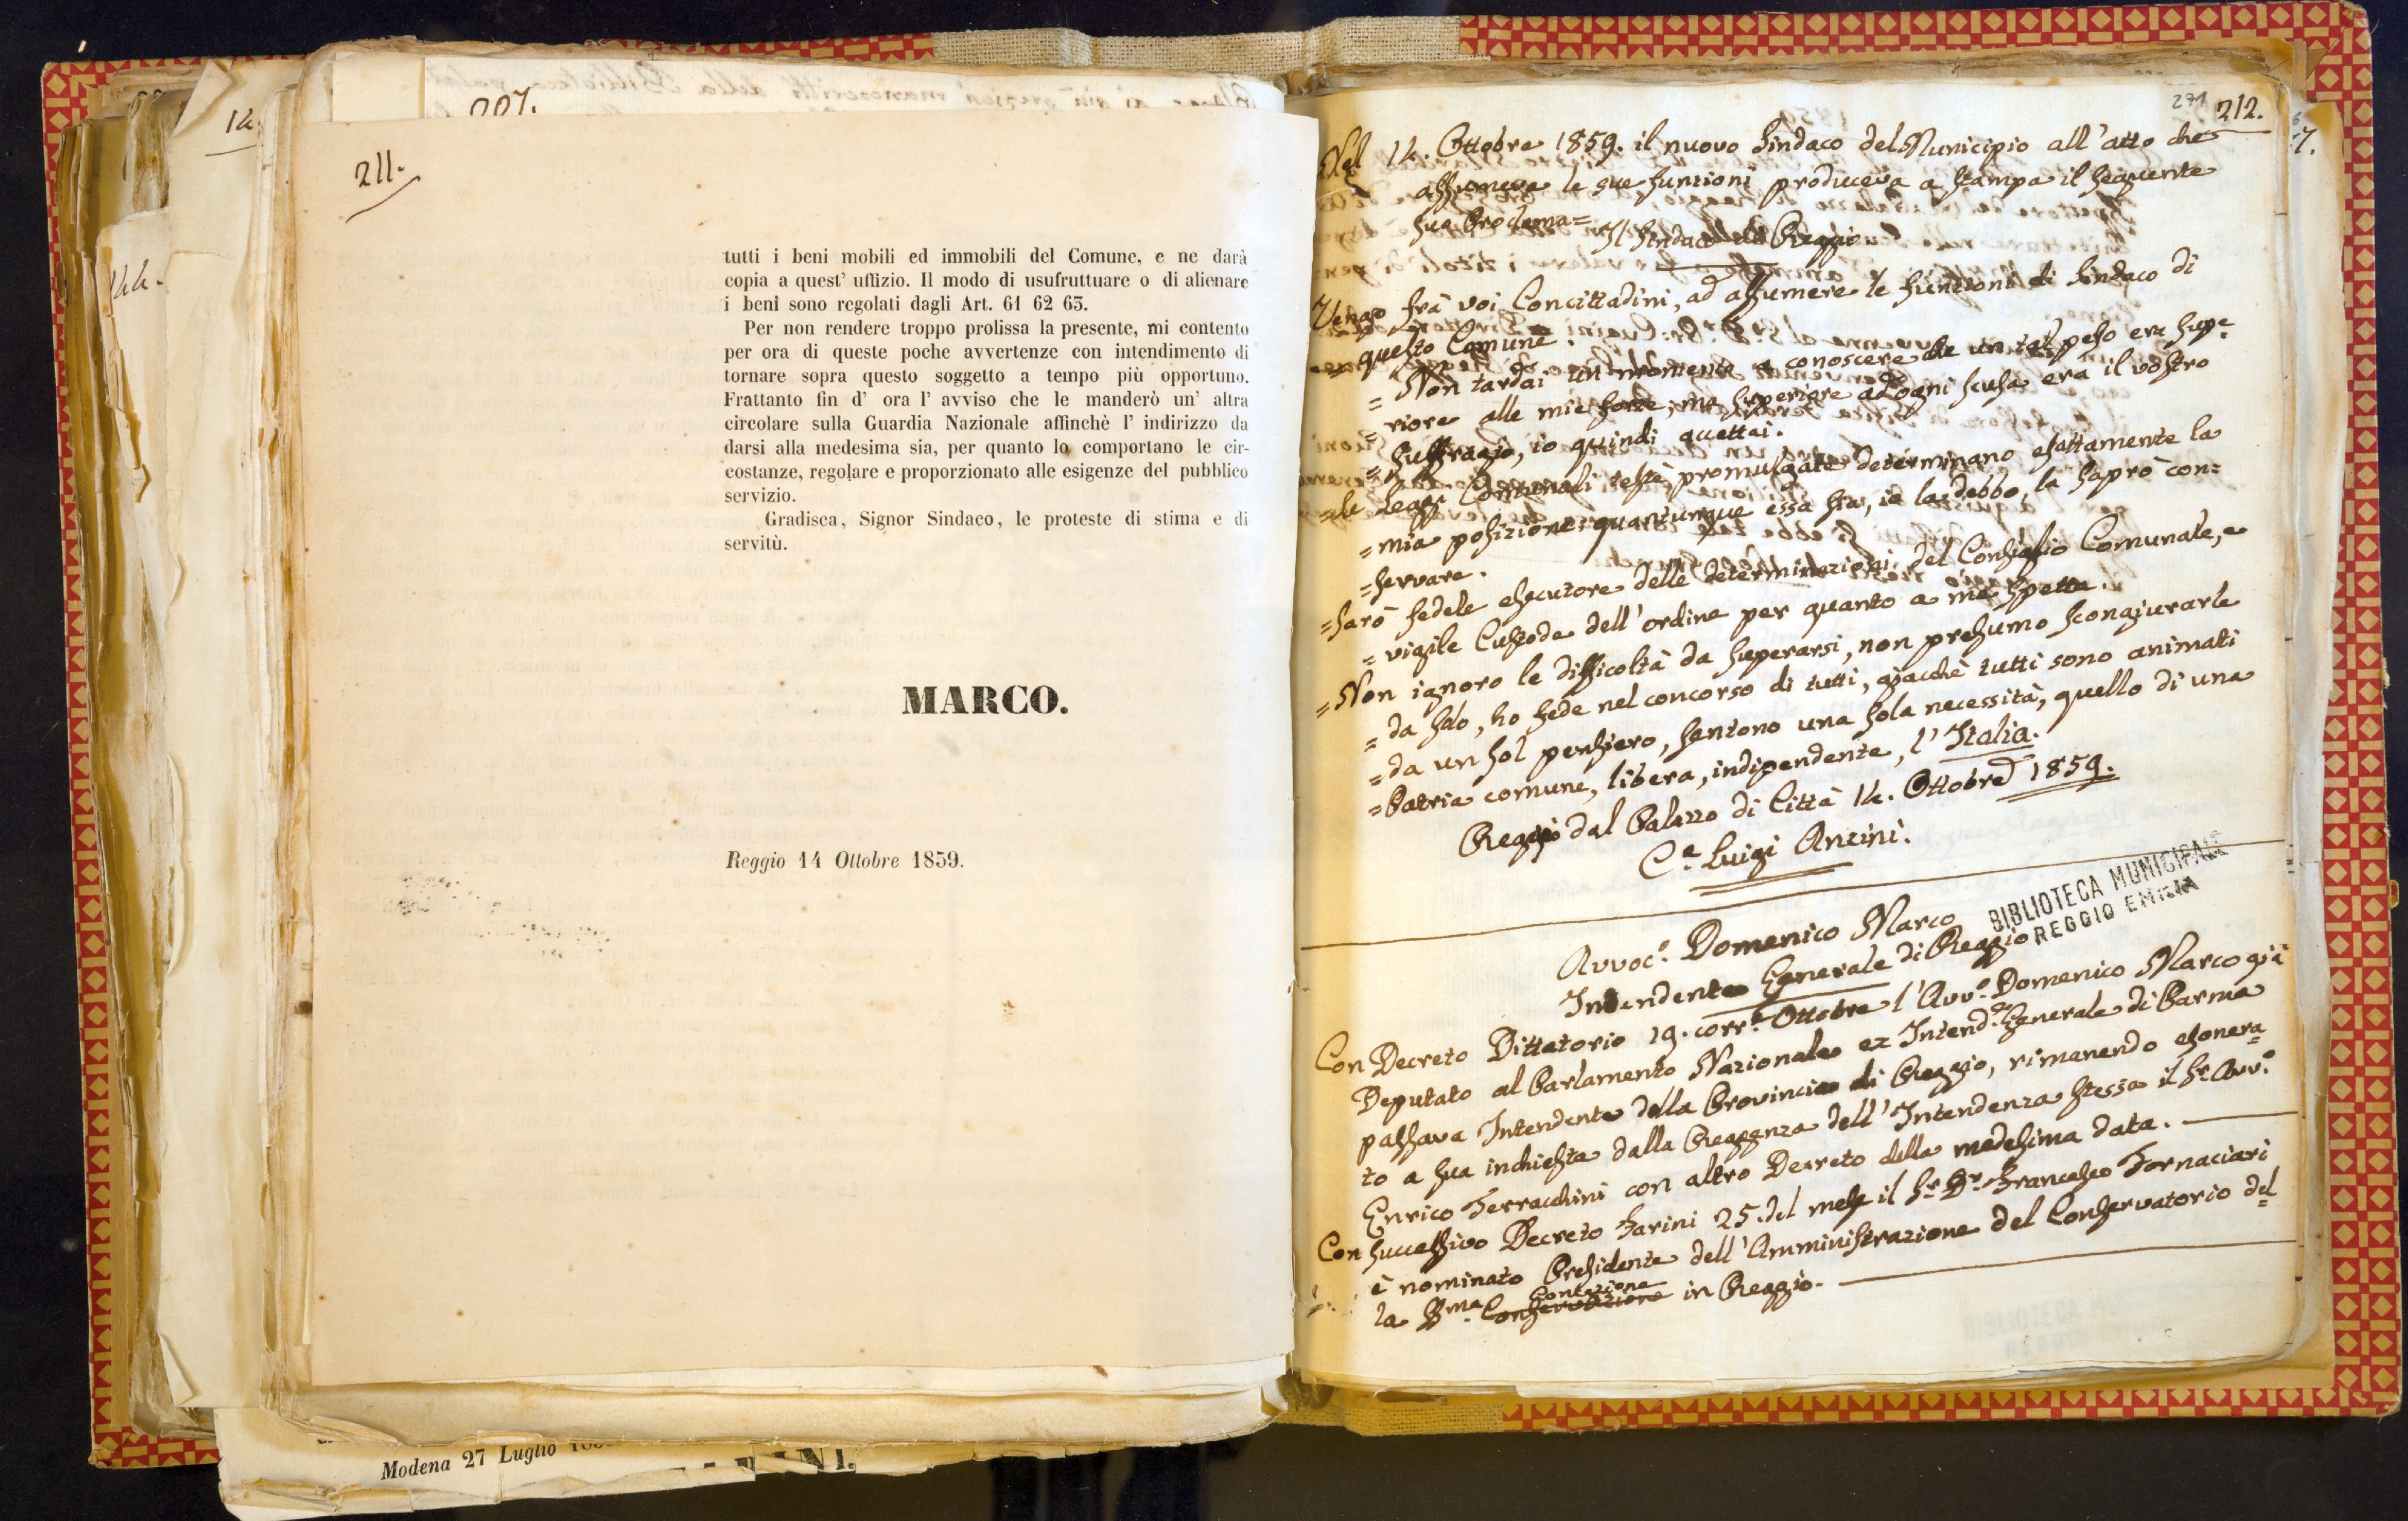 207.
14
211.
144.
tutti i beni mobili ed immobili del Comune, e ne darà
copia a quest' uffizio. Il modo di usufruttuare o di alienare
i beni sono regolati dagli Art. 61 62 63.
Per non rendere troppo prolissa la presente, mi contento
per ora di queste poche avvertenze con intendimento di
tornare sopra questo soggetto a tempo più opportuno.
Frattanto fin d' ora l' avviso che le manderò un' altra
circolare sulla Guardia Nazionale affinchè l' indirizzo da
darsi alla medesima sia, per quanto lo comportano le cir-
costanze, regolare e proporzionato alle esigenze del pubblico
servizio.
Gradisca, Signor Sindaco, le proteste di stima e di
servitù.
MARCO.
Reggio 14 Ottobre 1859.
Modena 27 Luglio
271
212.
7.
Nel 14. Ottobre 1859. il nuovo Sindaco del Municipio all' atto che
assumeva le sue funzioni produceva a stampa il seguente
suo Proclama=
Il Sindaco di Reggio
Vengo frà voi Concittadini, ad assumere le funzioni di Sindaco di
= questo Comune.
= Non tardai un momento a conoscere che un tal peso era supe=
= riore alle mie forze, ma superiore ad ogni scusa era il vostro
= suffragio, io quindi accettai.
=Le Leggi Comunali testè promulgate determinano esattamente la
= mia posizione: quantunque essa sia, io la debbo, la saprò con=
=servare.
=Sarò fedele esecutore delle determinazioni del Consiglio Comunale, e
= vigile Custode dell' ordine per quanto a me spetta.
=Non ignoro le difficoltà da superarsi, non presumo scongiurarle
= da solo, ho fede nel concorso di tutti, giacchè tutti sono animati
= da un sol pensiero, sentono una sola necessità, quello di una
=Patria comune, libera, indipendente, l' Italia.
Reggio dal Palazzo di Città 14. Ottobre 1859.
Ce. Luigi Ancini.
BIBLIOTECA MUNICIPALE
REGGIO EMILIA
Avvoc.o Domenico Marco
Intendente Generale di Reggio
Con Decreto Dittatorio 19. corr.e Ottobre l' Avv.o Domenico Marco già
Deputato al Parlamento Nazionale ex Intend.e Generale di Parma
passava Intendente della Provincia di Reggio, rimanendo esonera=
to a sua inchiesta dalla Reggenza dell' Intendenza stessa il Sr. Avv.o
Enrico Terracchini con altro Decreto della medesima data.
Con successivo Decreto Farini 25. del mese il Sr. Dr. Francesco Fornaciari
è nominato Presidente dell' Amministrazione del Conservatorio del=
la SSma. Concezione in Reggio.